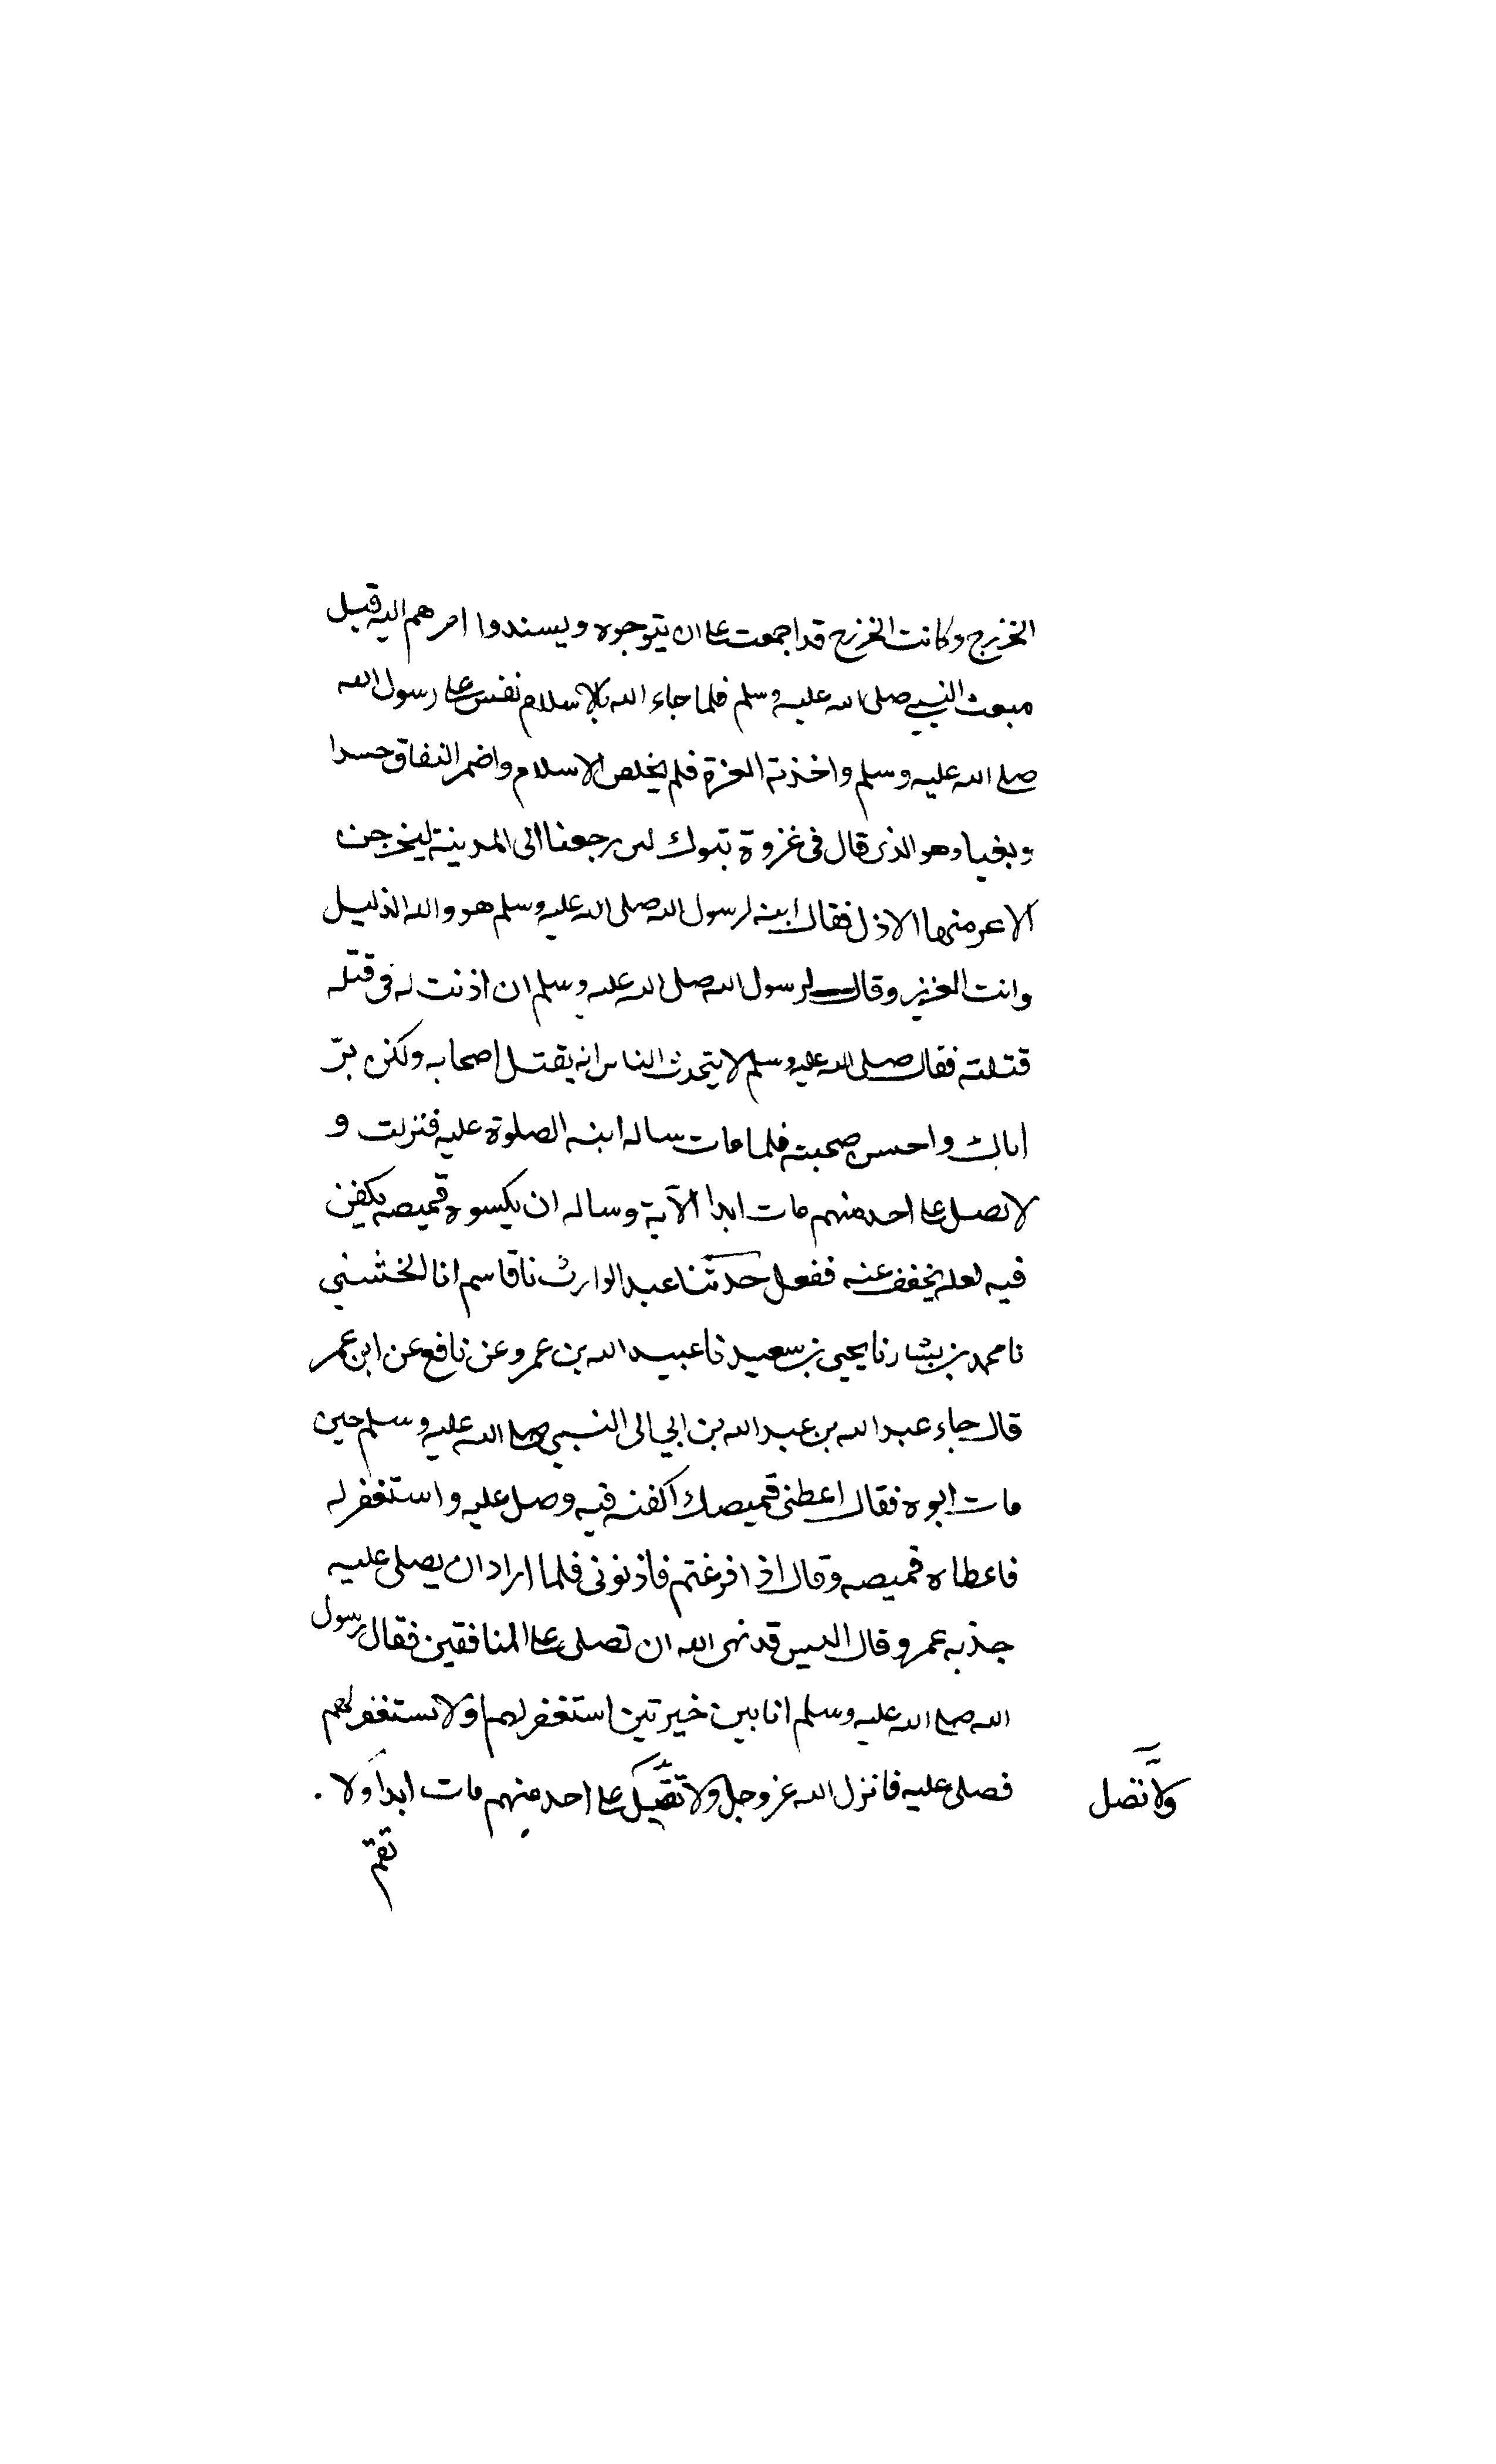 الخزرج وكانت الخزرج قد اجمعت على ان يتوجوه ويسندوا امرهم اليه قبل
مبعث النبي صلى الله عليه وسلم فلما جاء الله بالاسلام نفس على رسول الله
صلى الله عليه وسلم واخذته العزة فلم يخلص الاسلام واضمر النفاق حسدا
وبغيا وهو الذى قال فى غزوة تبوك لئن رجعنا الى المدينة ليخرجن
الاعز منها الاذل فقال ابنه لرسول الله صلى الله عليه وسلم هو والله الذليل
وانت العزيز وقال لرسول الله صلى الله عليه وسلم ان اذنت له فى قتله
قتلته فقال صلى الله عليه وسلم لا يتحدث الناس انه يقتل اصحابه ولكن برّ
اباك واحسن صحبته فلما مات ساله ابنه الصلوة عليه فنزلت و
لا تصل على احد منهم مات ابدا الآية وساله ان يكسوه قميصه يكفن
فيه لعله يخفف عنه ففعل حدثنا عبد الوارث نا قاسم انا الخشني
نا محمد بن بشار نا يحيى بن سعيد نا عبيد الله بن عمرو عن نافع عن ابن عمر
قال جاء عبد الله بن عبد الله بن ابي الى النبي صلى الله عليه وسلم حين
مات ابوه فقال اعطنى قميصك اكفنه فيه وصل عليه واستغفر له
فاعطاه قميصه وقال اذا فرغتم فاذنونى فلما اراد ان يصلى عليه
جذبه عمر وقال اليس قد نهى الله ان تصلى على المنافقين فقال رسول
الله صلى الله عليه وسلم انا بين خيرتين استغفر لهم او لا تستغفر لهم
فصلى عليه فانزل الله عز وجل ولا على احد منهم مات ابدا ولا .
ولا تصل
تقم